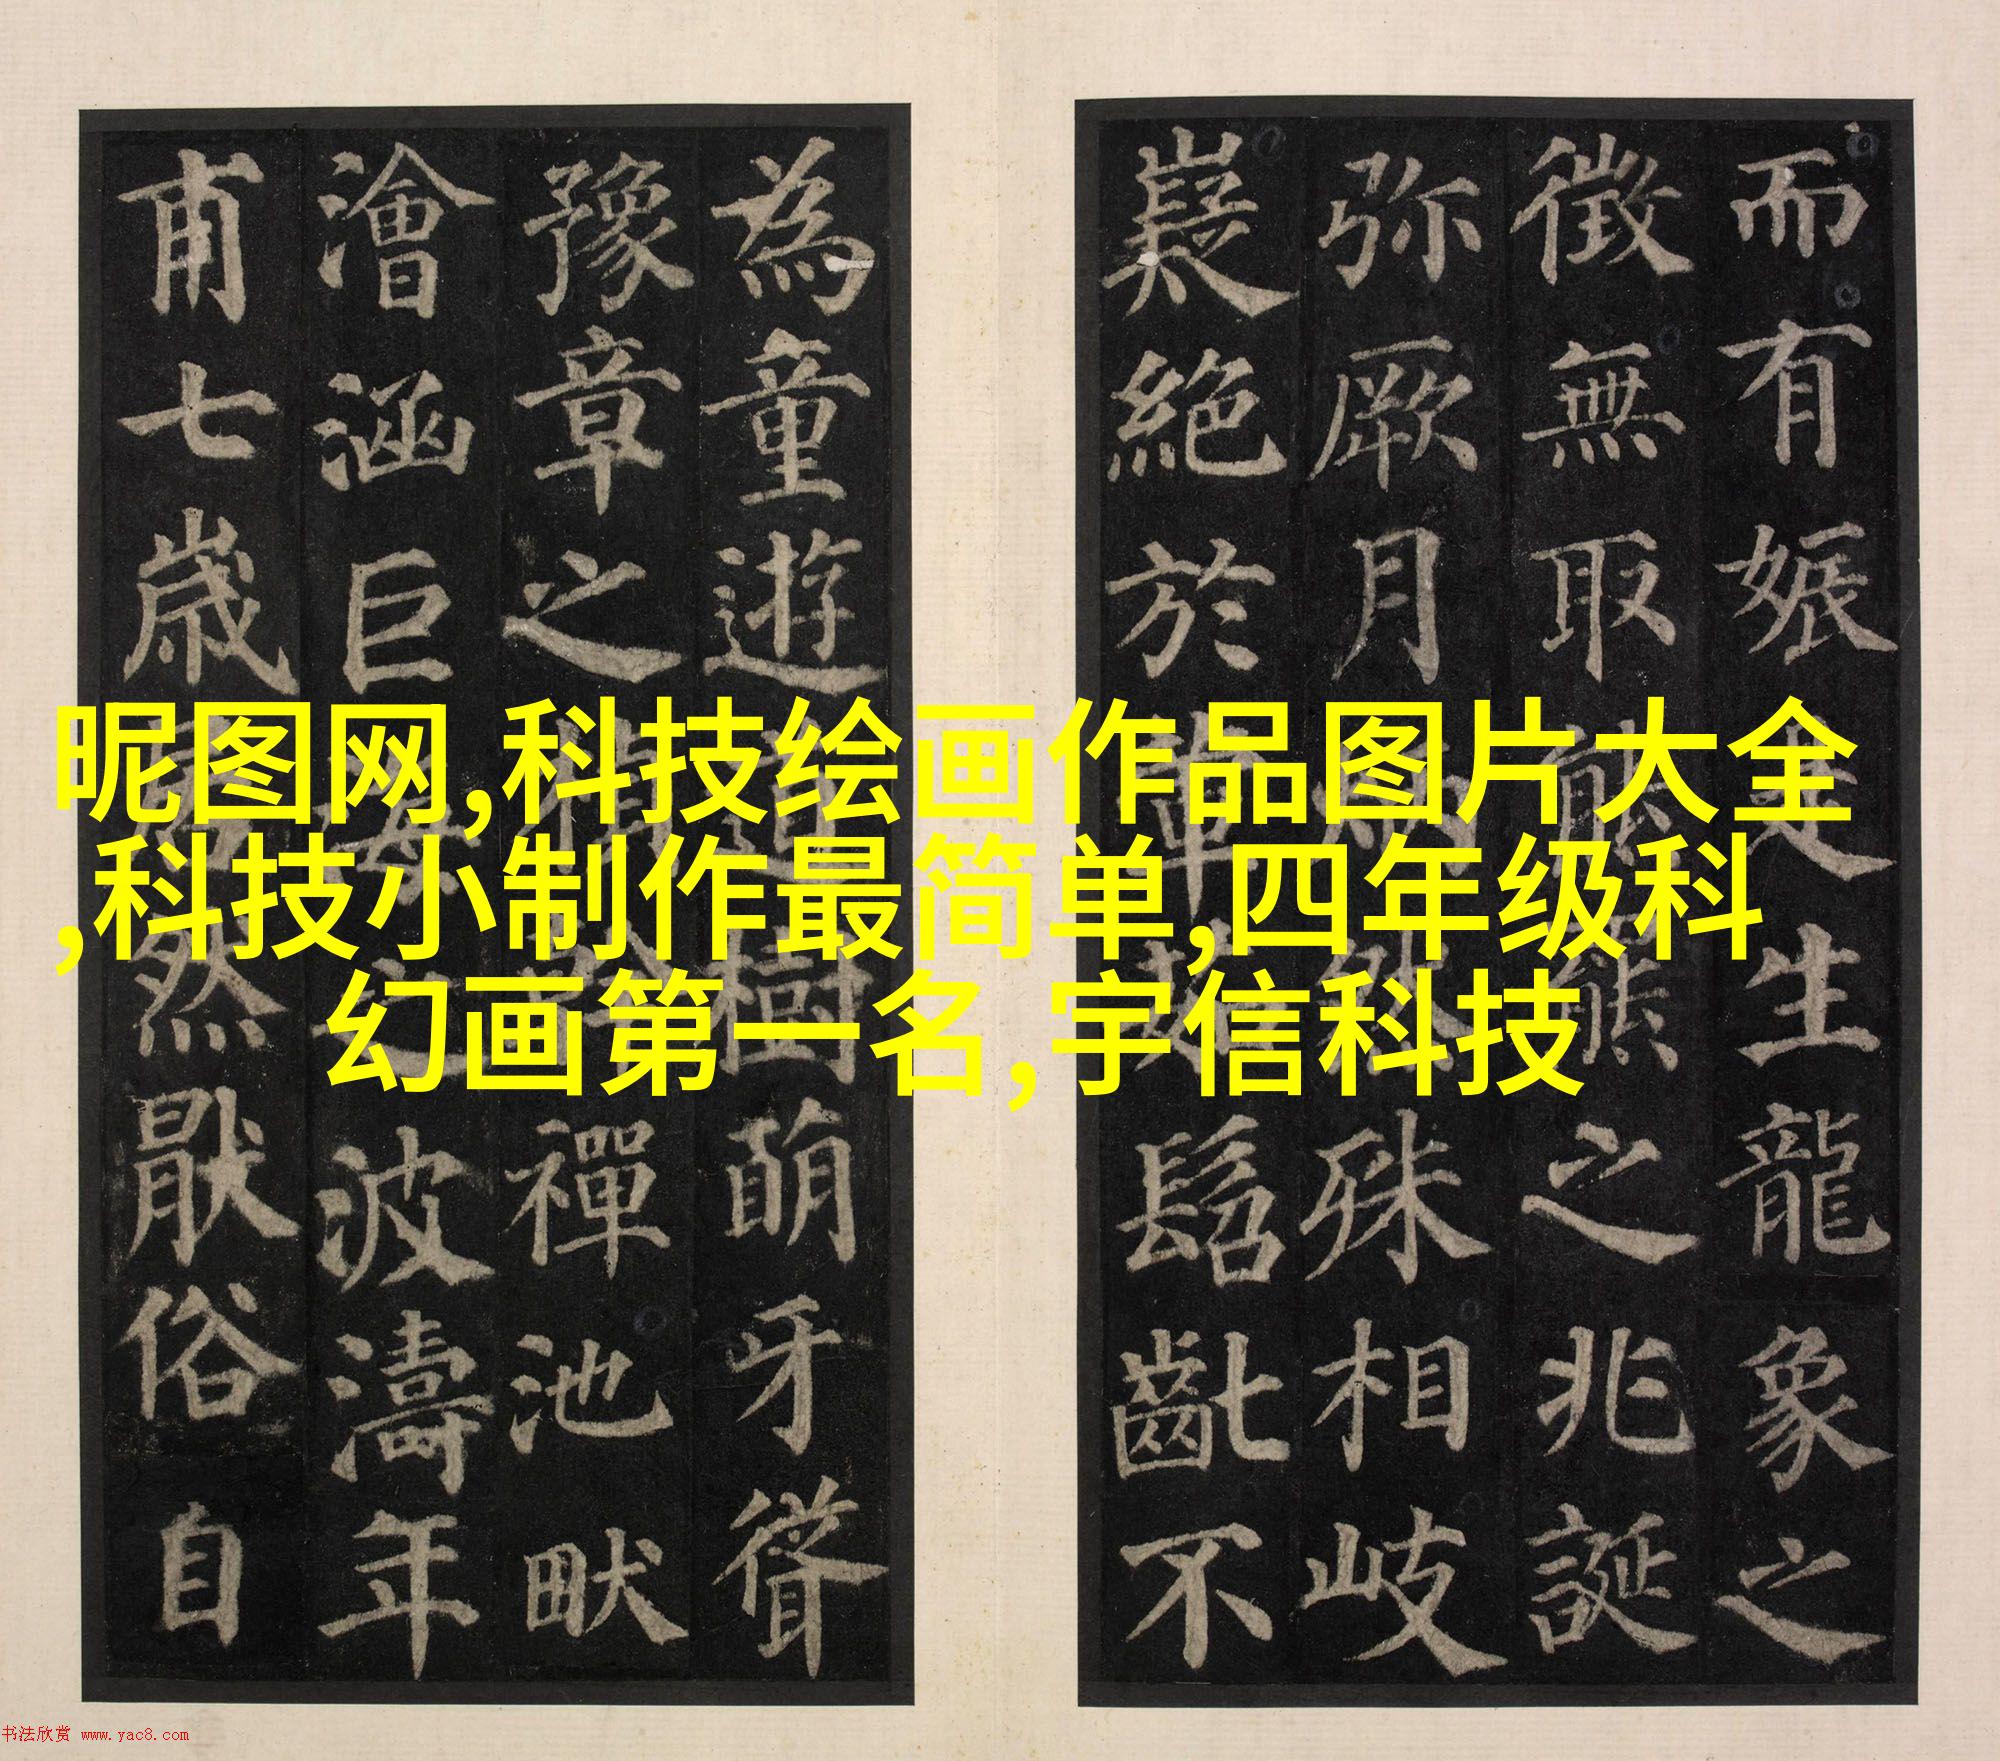 而有娠是生龍象之
徵無取熊之兆誕
弥厥月殊相岐
嶷絕於髫齔不
為童遊道樹萌牙聳
豫章之禪池畎
澮涵巨海之波濤年
甫七歲居然厭俗自
昵图网,科技绘画作品图片大全
,科技小制作最简单,四年级科
幻画第一名,宇信科技
书法欣赏 www.yac8.com